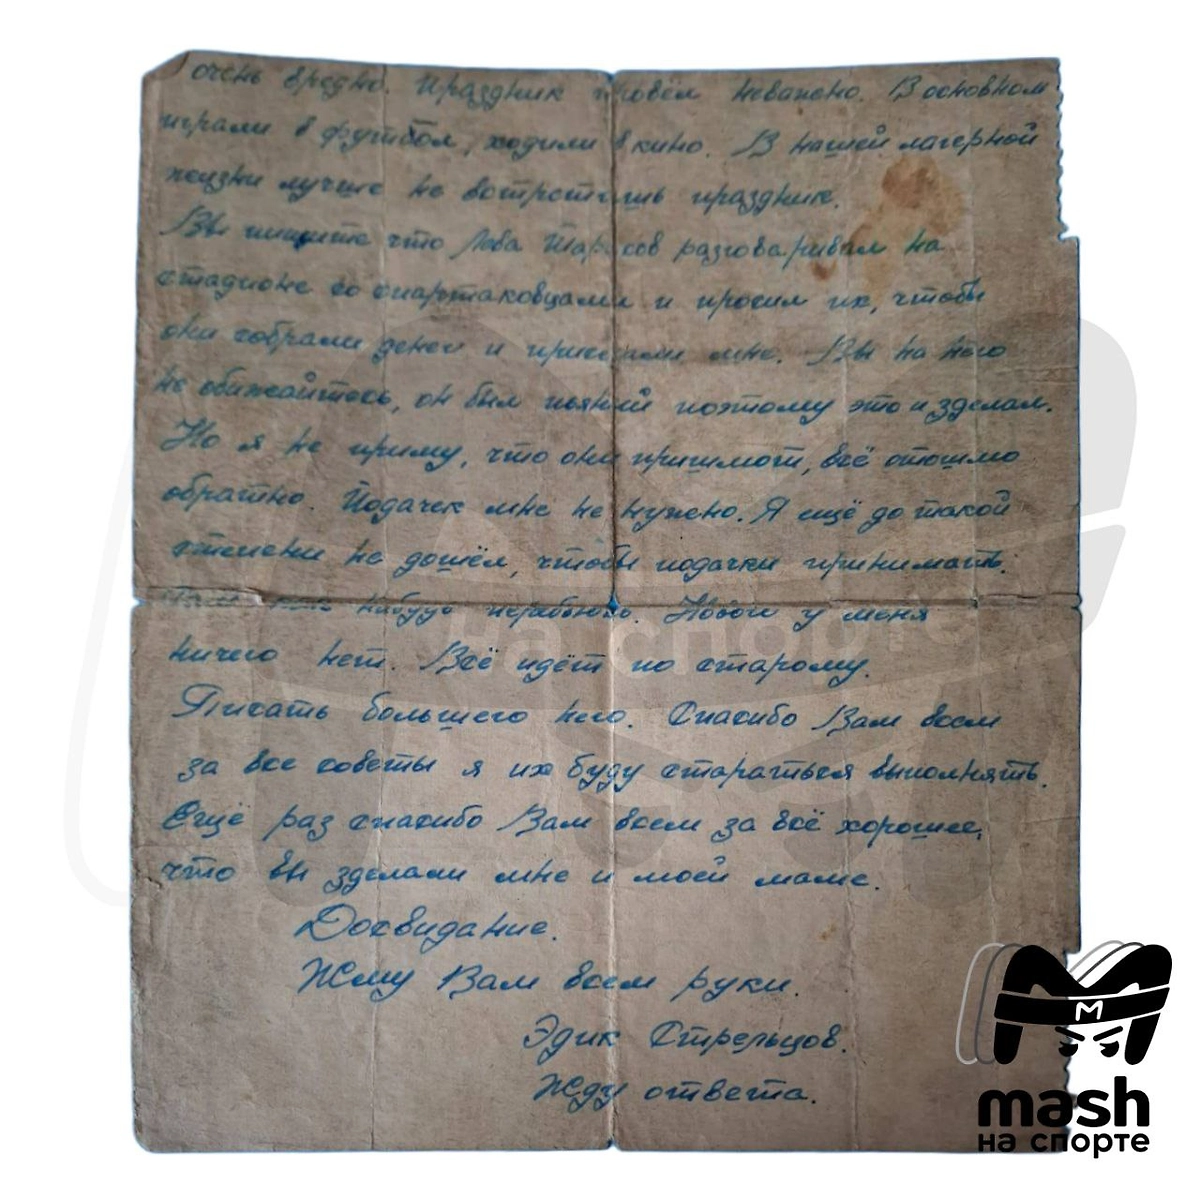 очень вредно. Праздник провёл неважно. В основном
играли в футбол, ходили в кино. В нашей лагерной
жизни лучше не встретишь праздник.
Вы пишите что Лёва Тарасов разговаривал на
стадионе со спартаковцами и просил их, чтобы
они собрали денег и прислали мне. Вы на него
не обижайтесь, он был пьяный поэтому это и зделал.
Но я не приму, что они пришлют, всё отошлю
обратно. Подачек мне не нужно. Я ещё до такой
степени не дошёл, чтобы подачки принимать.
нибудь перебьюсь. Нового у меня
ничего нет. Всё идёт по старому.
Писать больше нечего. Спасибо Вам всем
за все советы я их буду стараться выполнять.
Ещё раз спасибо Вам всем за всё хорошее,
что вы зделали мне и моей маме.
Досвидание.
Жму Вам всем руки.
Эдик Стрельцов.
Жду ответа.
M
mash
на спорте